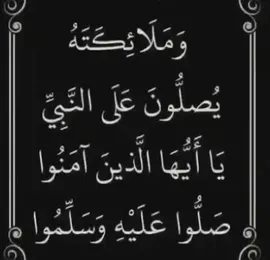 وَمَلَائِكَتَهُ
يُصلُّونَ عَلَى النَّبِيِّ
يَا أَيُّهَا الَّذينَ آمَنُوا
صَلُّوا عَلَيْهِ وَسَلِّمُوا